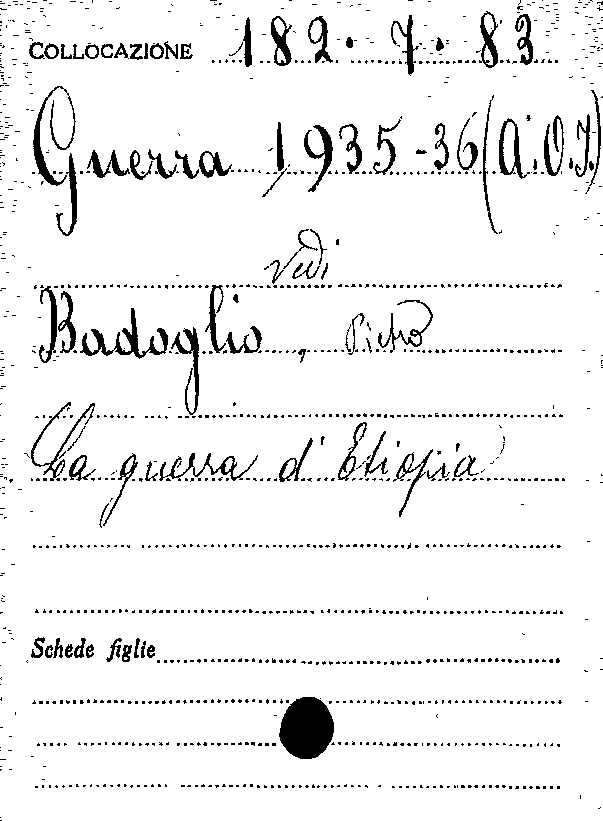 COLLOCAZIONE 182. 7. 83
Guerra 1935-36 (A.O.I.)
vedi
Badoglio, Pietro
La guerra d'Etiopia
Schede figlie